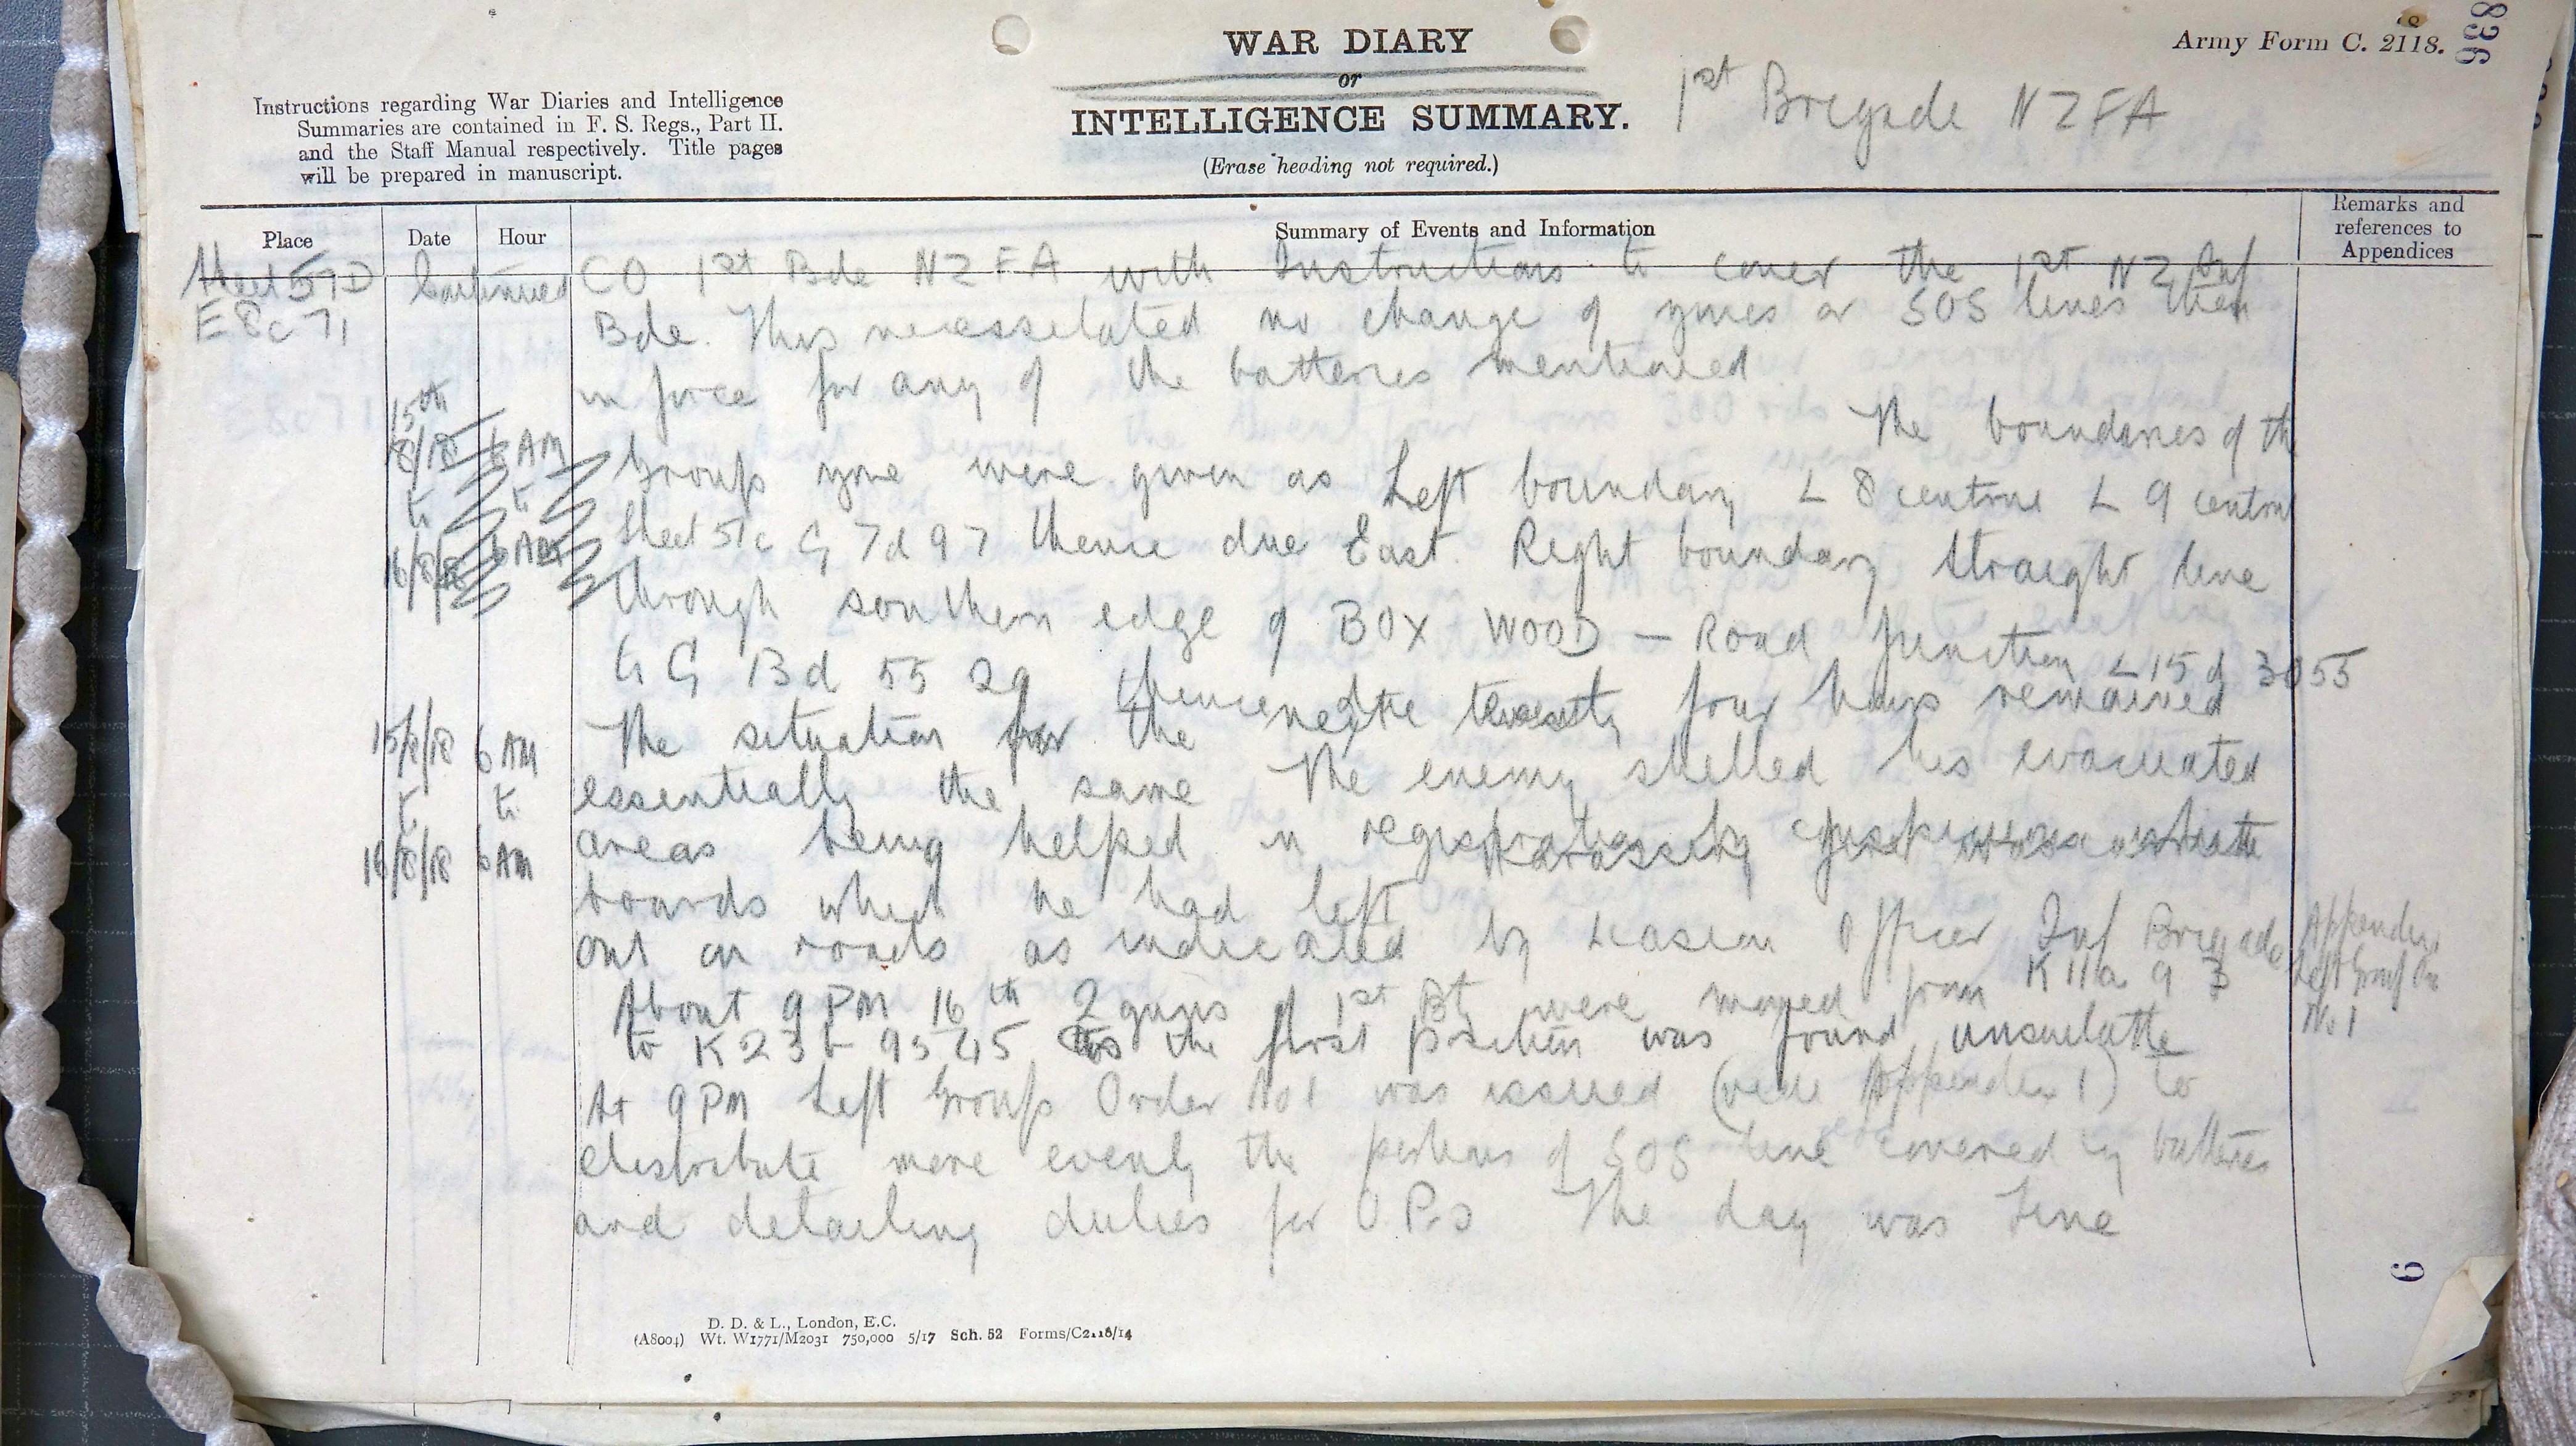 WAR DIARY
or
INTELLIGENCE SUMMARY.
(Erase heading not required.)
Army Form C. 2118.
836
1st Brigade NZFA
Instructions regarding War Diaries and Intelligence
Summaries are contained in F. S. Regs., Part II.
and the Staff Manual respectively. Title pages
will be prepared in manuscript.
Place
Date
Hour
Summary of Events and Information
Remarks and
references to
Appendices
Sheet 57D
E 8c 71
Continued
CO 1st Bde NZFA with Instructions to cover the 1st NZ Inf
Bde. This necessetated no change of zones or SOS lines then
in force for any of the batteries mentioned
15th
8/18 6 AM
to to
16/8/18 6 AM
The boundaries of the
Group zone were given as Left boundary L 8 central L 9 central
Sheet 57c G 7d 97 thence due East. Right boundary straight line
through southern edge of BOX WOOD — Road Junction L 15 d 3055
to G 13d 55 29 thence
15/8/18 6 AM
to to
16/8/18 6 AM
The situation for the twenty four hours remained
essentially the same The enemy shelled his evacuated
areas being helped in
boards which he had left
out on roads as indicated by Liason Officer Inf Brigade
About 9 PM 16th 2 guns 1st Bt were moved from K11a 9 3
to K 23 b 95 45 as the first position was found unsuitable
At 9 PM Left Group Order No 1 was issued (vide Appendix 1) to
distribute more evenly the portions of SOS line covered by batteries
and detailing duties for O.P.s The day was fine
Appendix
Left Group Or
No 1
6
D. D. & L., London, E.C.
(A8004) Wt. W1771/M2031 750,000 5/17 Sch. 52 Forms/C2118/14